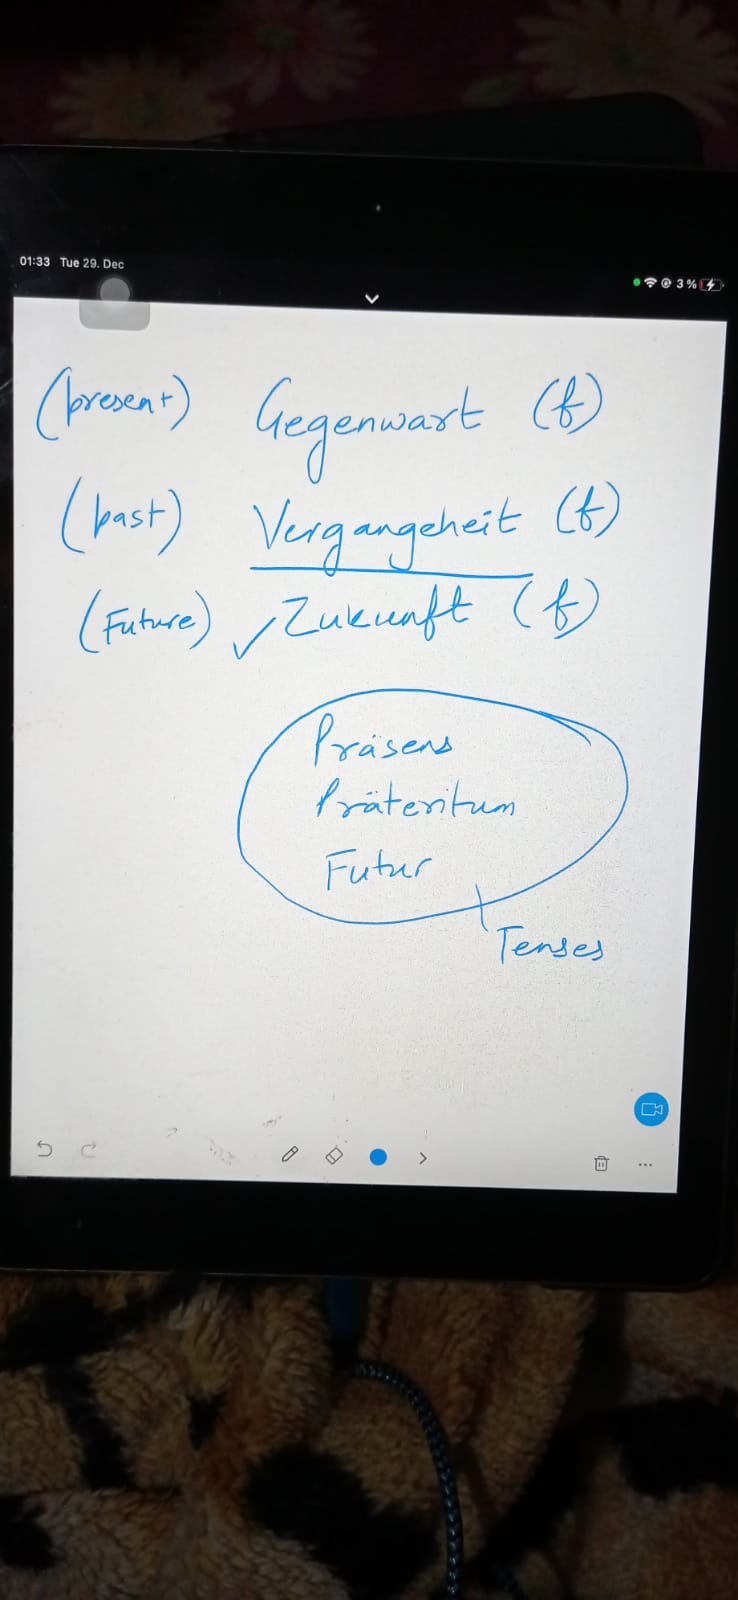 01:33 Tue 29. Dec
3%
(present) Gegenwart (f)
(past) Vergangeheit (f)
(Future) ✓ Zukunft (f)
Präsens
Präteritum
Futur
Tenses